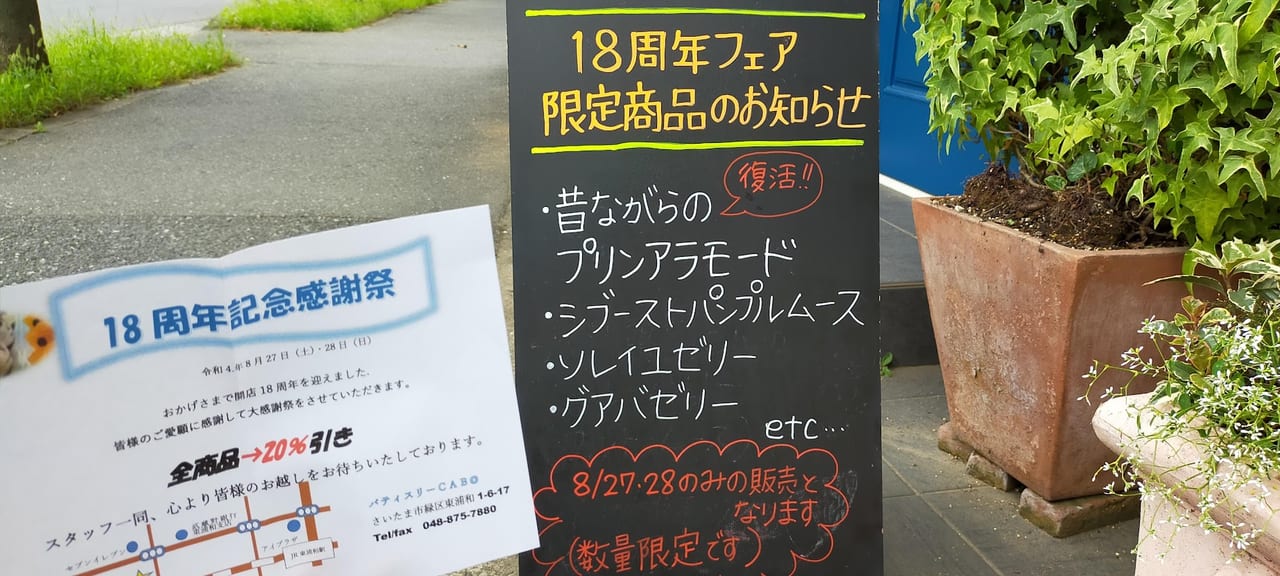 18周年記念感謝祭
令和4.年8月27日（土）・28日（日）
おかげさまで開店18周年を迎えました.
皆様のご愛顧に感謝して大感謝祭をさせていただきます。
全商品→20%引き
スタッフ一同、心より皆様のお越しをお待ちいたしております。
パティスリーCABO
さいたま市緑区東浦和1-6-17
Tel/fax 048-875-7880
セブンイレブン
東浦和支店
アイプラザ
JR東浦和駅
18周年フェア
限定商品のお知らせ
復活!!
・昔ながらの
プリンアラモード
・シブーストパンプルムース
・ソレイユゼリー
・グアバゼリー
etc…
8/27.28のみの販売と
なります
(数量限定です)